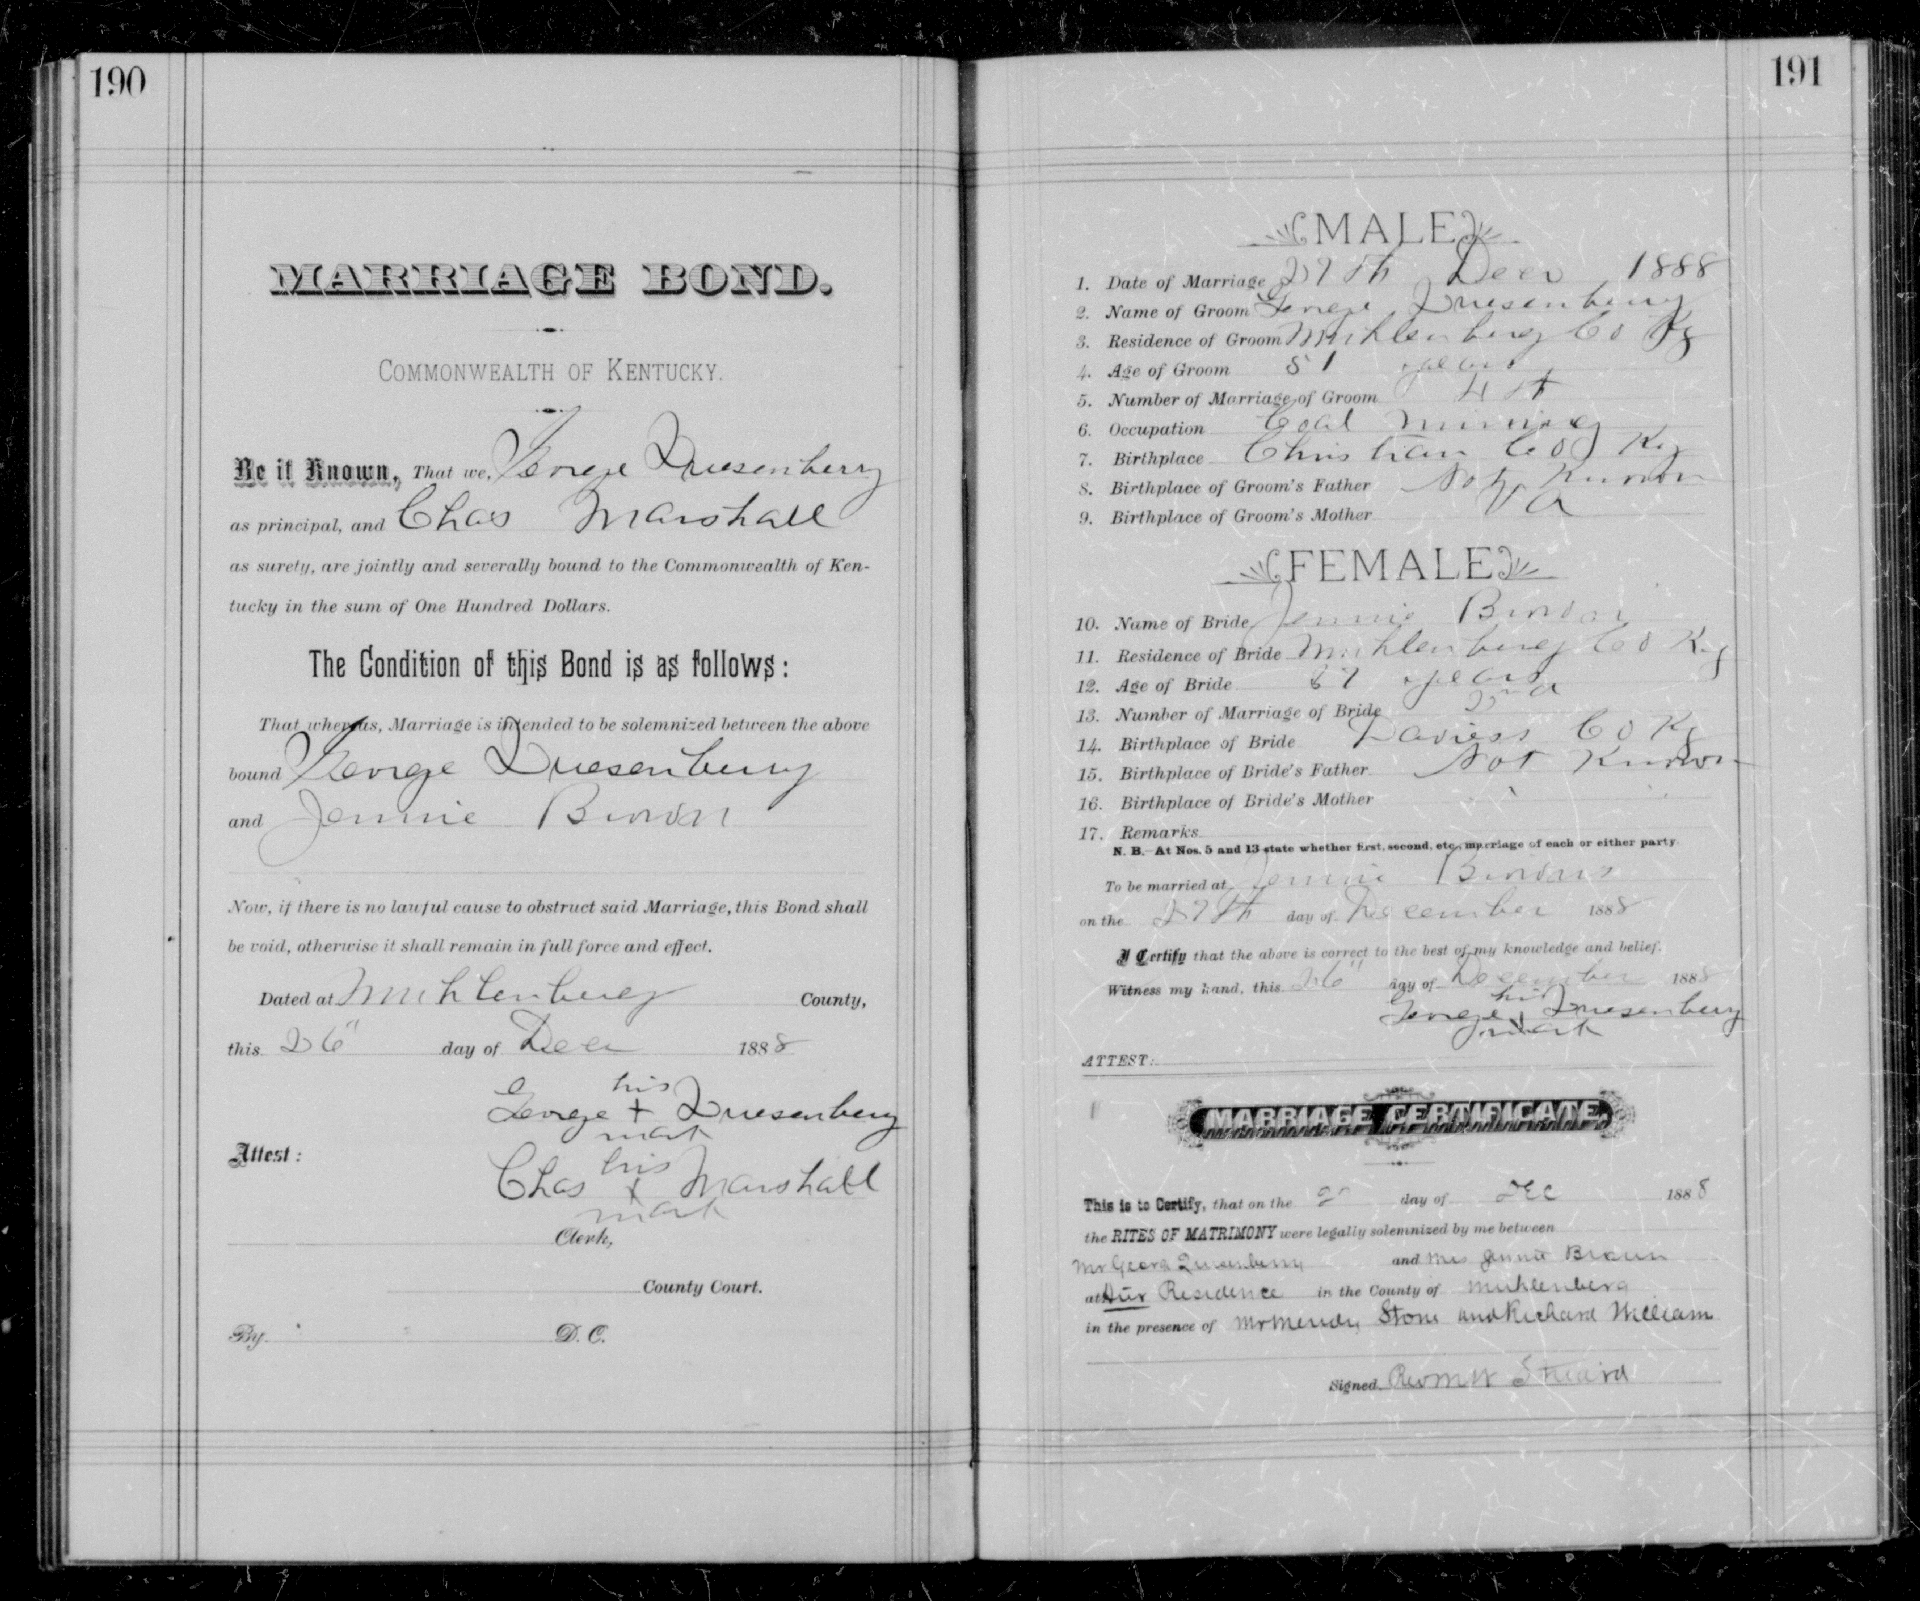 190
MARRIAGE BOND.
COMMONWEALTH OF KENTUCKY.
Be it Known, That we, George Quesenberry
as principal, and Chas Marshall
as surety, are jointly and severally bound to the Commonwealth of Ken-
tucky in the sum of One Hundred Dollars.
The Condition of this Bond is as follows:
That whereas, Marriage is intended to be solemnized between the above
bound George Quesenberry
and Jennie Brown
Now, if there is no lawful cause to obstruct said Marriage, this Bond shall
be void, otherwise it shall remain in full force and effect.
Dated at Muhlenberg County,
this 26" day of Decr 1888
his
George + Quesenberry
mark
Attest:
his
Chas + Marshall
mark
Clerk,
County Court.
By D. C.
191
MALE
1. Date of Marriage 27th Decr 1888
2. Name of Groom George Quesenberry
3. Residence of Groom Muhlenberg Co Ky
4. Age of Groom 51 years
5. Number of Marriage of Groom
6. Occupation Coal mining
7. Birthplace Christian Co Ky
8. Birthplace of Groom's Father Not Known
9. Birthplace of Groom's Mother Va
FEMALE
10. Name of Bride Jennie Brown
11. Residence of Bride Muhlenberg Co Ky
12. Age of Bride years
13. Number of Marriage of Bride 2nd
14. Birthplace of Bride Daviess Co Ky
15. Birthplace of Bride's Father Not Known
16. Birthplace of Bride's Mother " "
17. Remarks
N. B.—At Nos. 5 and 13 state whether first, second, etc., marriage of each or either party.
To be married at Jennie Browns
on the 27th day of December 1888
I Certify that the above is correct to the best of my knowledge and belief.
Witness my hand, this 26" day of December 1888
his
George + Quesenberry
mark
ATTEST:
MARRIAGE CERTIFICATE.
This is to Certify, that on the day of Dec 1888
the RITES OF MATRIMONY were legally solemnized by me between
Mr Georg Quesenberry and Mrs Jennie Brown
at Residence in the County of Muhlenberg
in the presence of Mr Stone and Richard William
Signed Rev